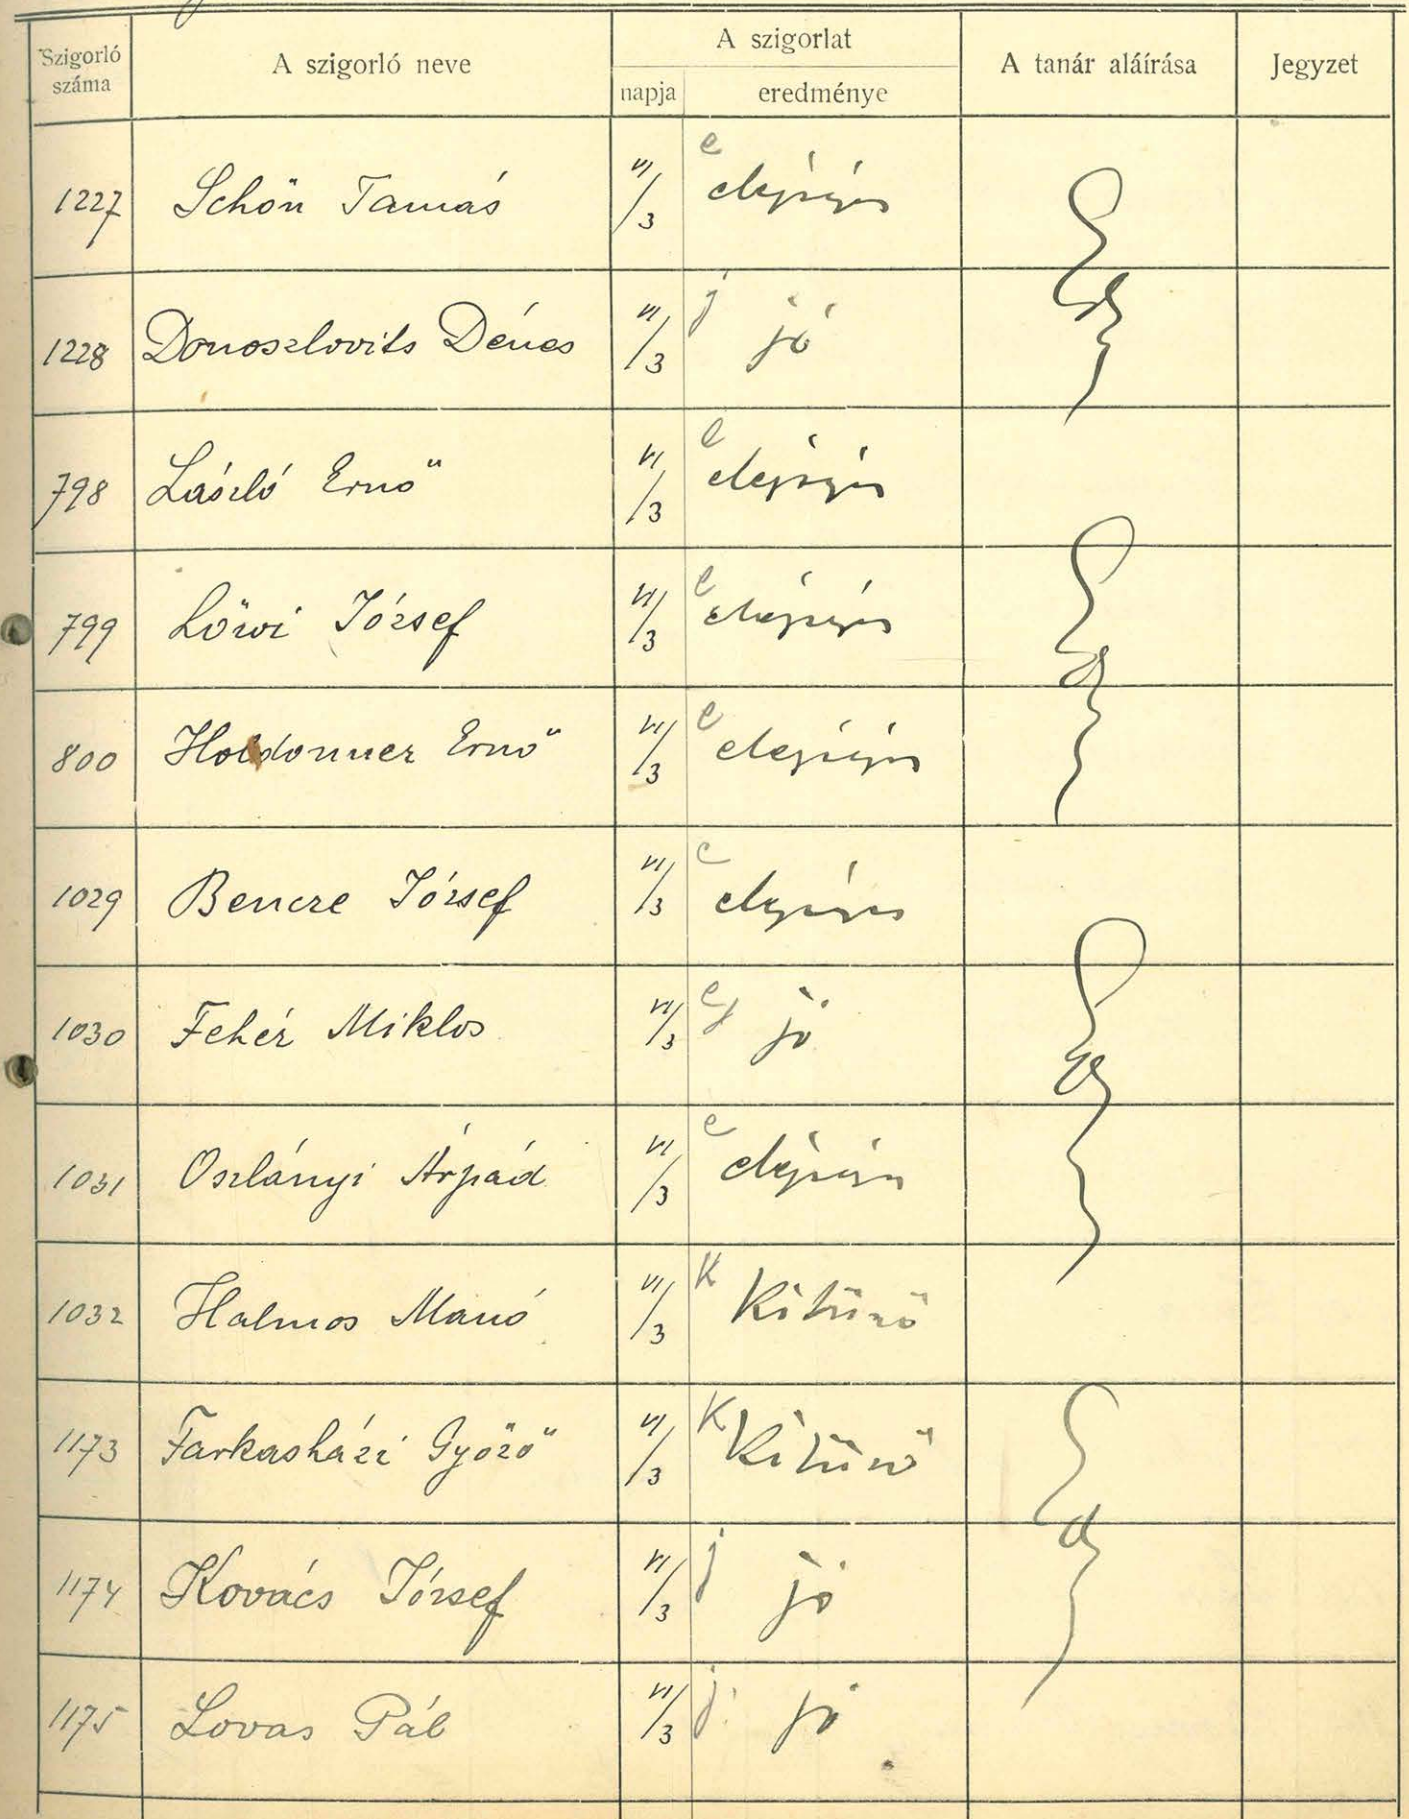 Szigorló száma A szigorló neve A szigorlat napja eredménye A tanár aláírása Jegyzet
1227 Schön Tamás VI/3 e elégséges
1228 Donoszlovits Dénes VI/3 j jó
798 László Ernő VI/3 e elégséges
799 Lőwi József VI/3 e elégséges
800 Holdonner Ernő VI/3 e elégséges
1029 Bencze József VI/3 e elégséges
1030 Fehér Miklos VI/3 jó
1031 Oszlányi Árpád VI/3 e elégséges
1032 Halmos Manó VI/3 K Kitünő
1173 Farkasházi Győző VI/3 K Kitünő
1174 Kovács József VI/3 j jó
1175 Lovas Pál VI/3 j jó